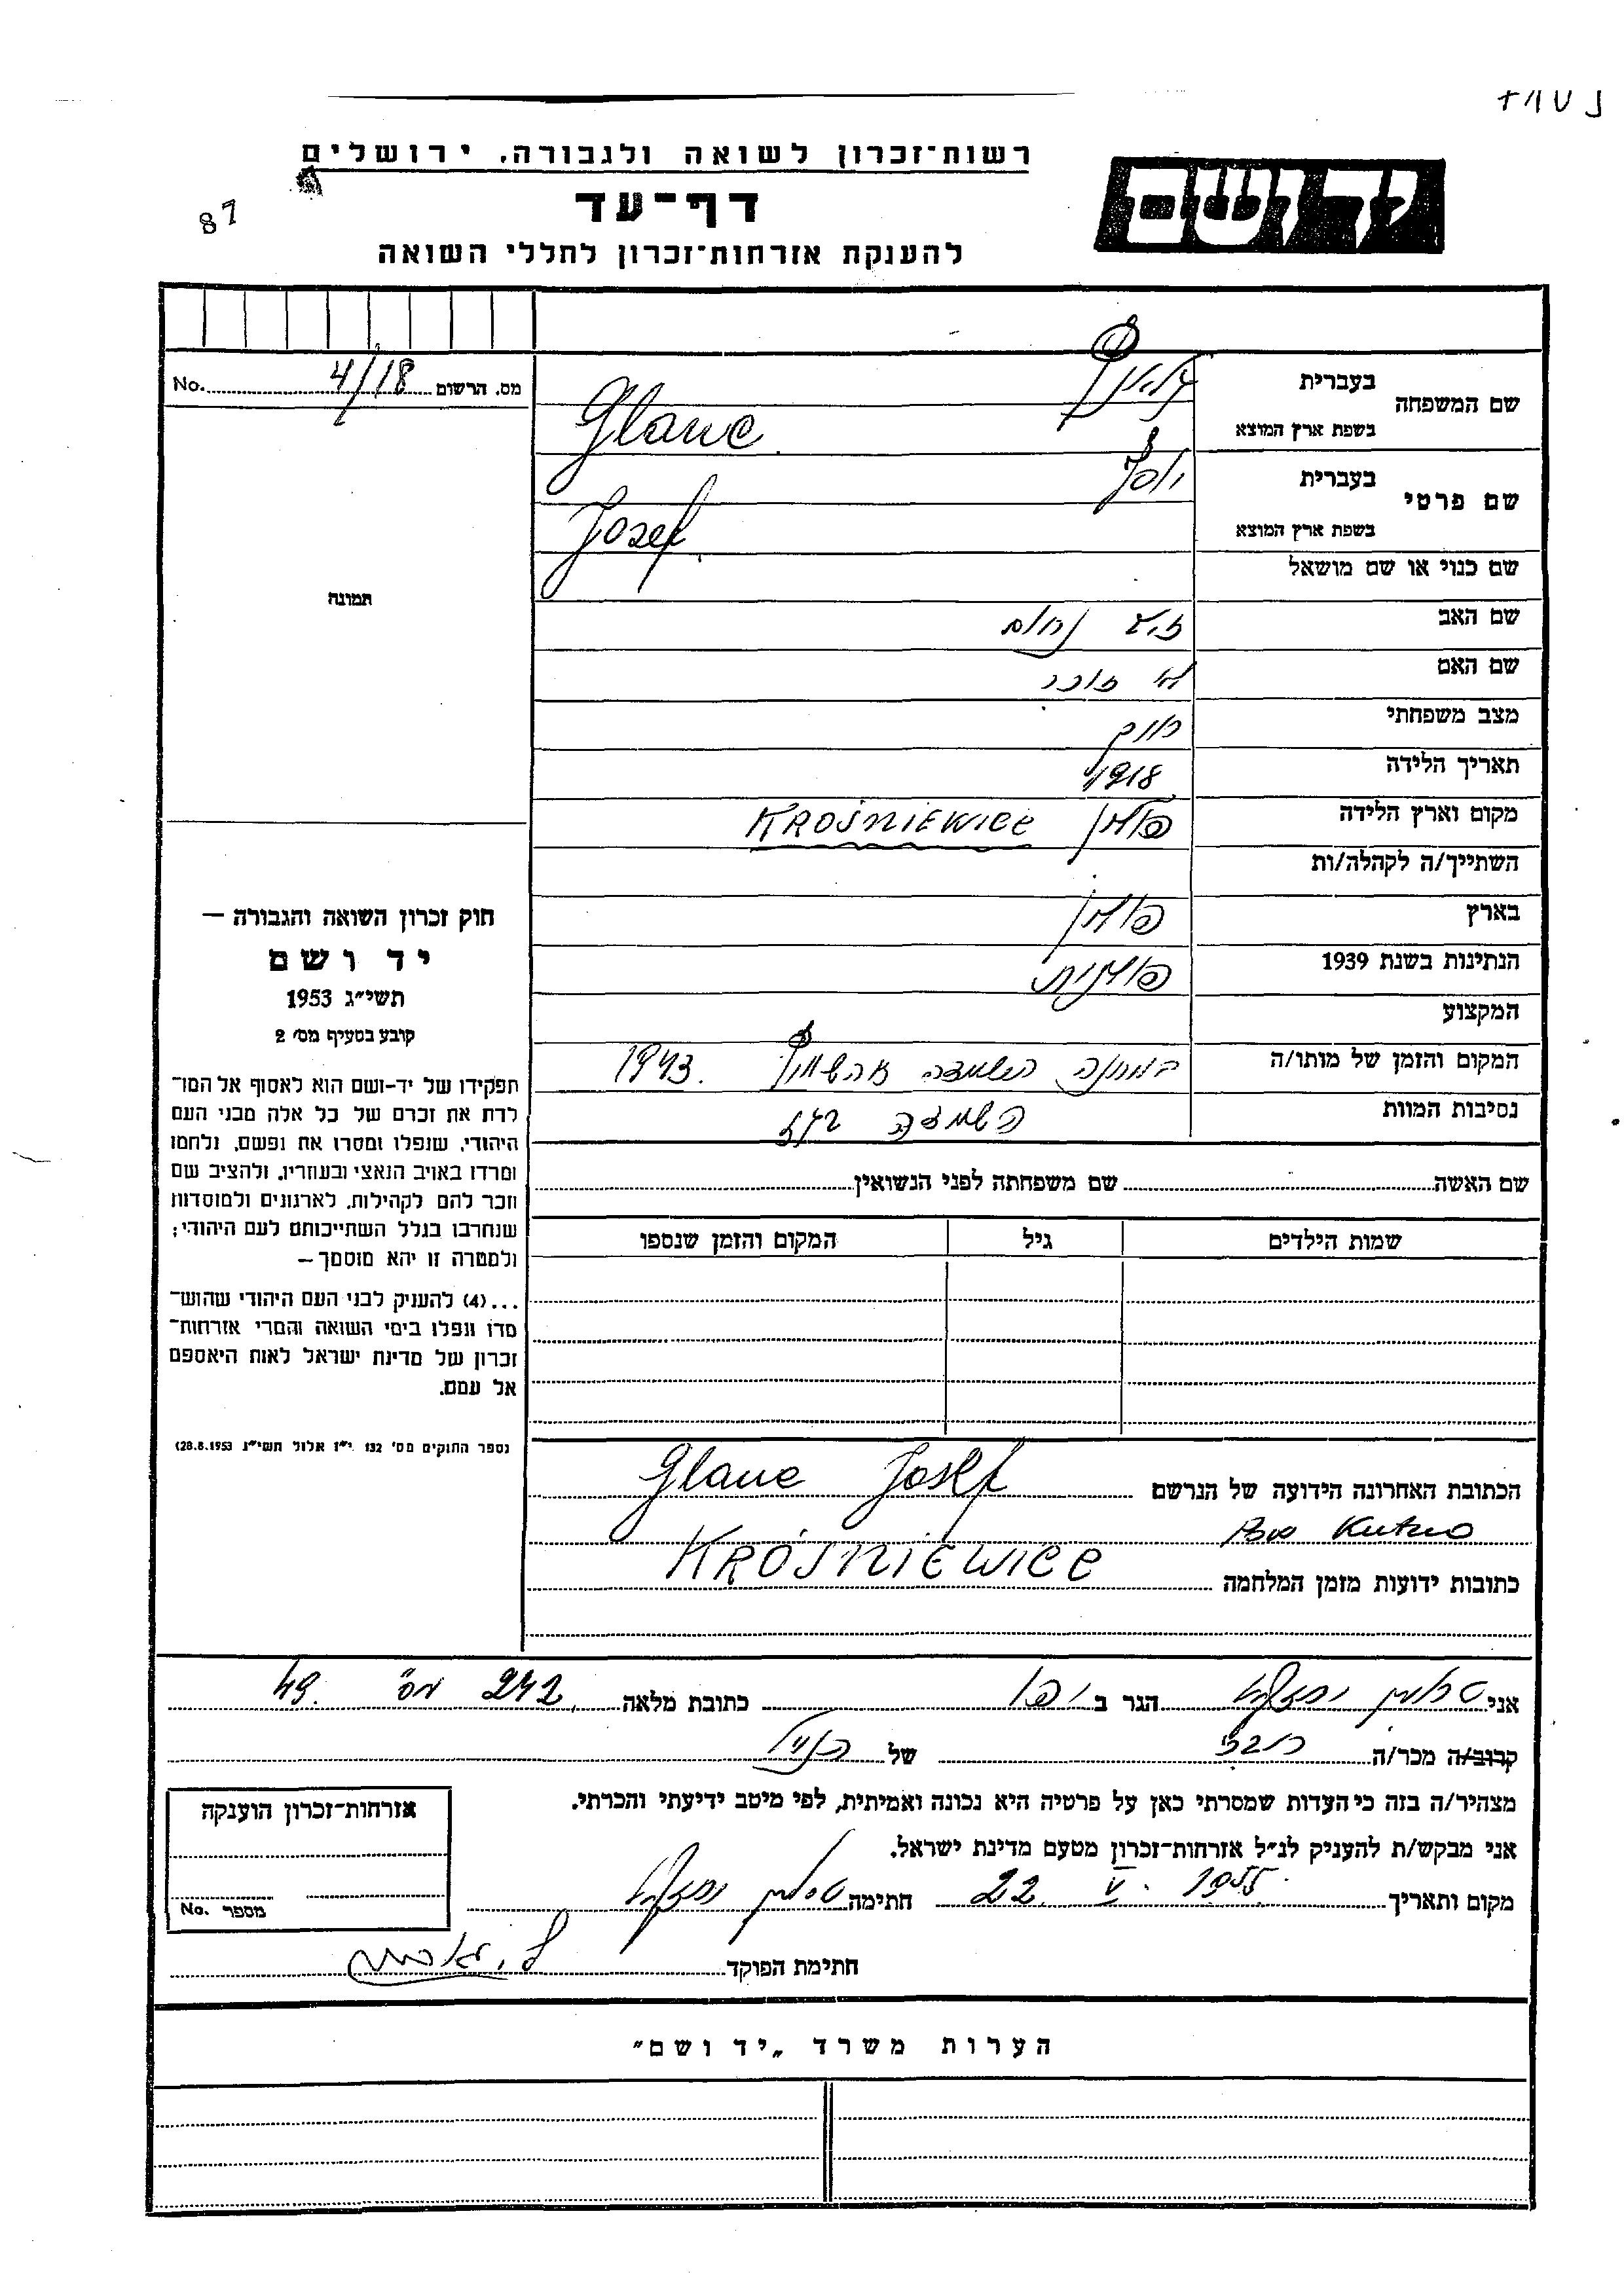 87
רשות־זכרון לשואה ולגבורה, ירושלים
יד ושם
דף־עד
להענקת אזרחות־זכרון לחללי השואה
מס. הרשום 4/18 No.
שם המשפחה
בעברית
בשפת ארץ המוצא Glawe
שם פרטי
בעברית יוסף
בשפת ארץ המוצא Josef
שם כנוי או שם מושאל
שם האב
שם האם
מצב משפחתי רווק
תאריך הלידה 1918
מקום וארץ הלידה פולין KROŚNIEWICE
השתייך/ה לקהלה/ות
בארץ פולין
הנתינות בשנת 1939 פולנית
המקצוע
המקום והזמן של מותו/ה במחנה השמדה 1943.
נסיבות המוות השמדה
שם האשה שם משפחתה לפני הנשואין
שמות הילדים גיל המקום והזמן שנספו
הכתובת האחרונה הידועה של הנרשם Glawe Josef
Kutno
כתובות ידועות מזמן המלחמה KROŚNIEWICE
תמונה
חוק זכרון השואה והגבורה —
יד ושם
תשי״ג 1953
קובע בסעיף מס׳ 2
תפקידו של יד-ושם הוא לאסוף אל המו־
לדת את זכרם של כל אלה מבני העם
היהודי, שנפלו ומסרו את נפשם, נלחמו
ומרדו באויב הנאצי ובעוזריו, ולהציב שם
וזכר להם לקהילות, לארגונים ולמוסדות
שנחרבו בגלל השתייכותם לעם היהודי;
ולמטרה זו יהא מוסמך —
...(4) להעניק לבני העם היהודי שהוש־
מדו ונפלו בימי השואה והמרי אזרחות־
זכרון של מדינת ישראל לאות היאספם
אל עמם.
(ספר החוקים מס׳ 132 י״ז אלול תשי״ג 28.8.1953)
אני הגר ב יפו כתובת מלאה 242 מס׳ 49.
קרוב/ה מכר/ה של
מצהיר/ה בזה כי העדות שמסרתי כאן על פרטיה היא נכונה ואמיתית, לפי מיטב ידיעתי והכרתי.
אני מבקש/ת להעניק לנ״ל אזרחות־זכרון מטעם מדינת ישראל.
מקום ותאריך 22. V. 1955 חתימה
חתימת הפוקד
אזרחות־זכרון הוענקה
מספר No.
הערות משרד „יד ושם״